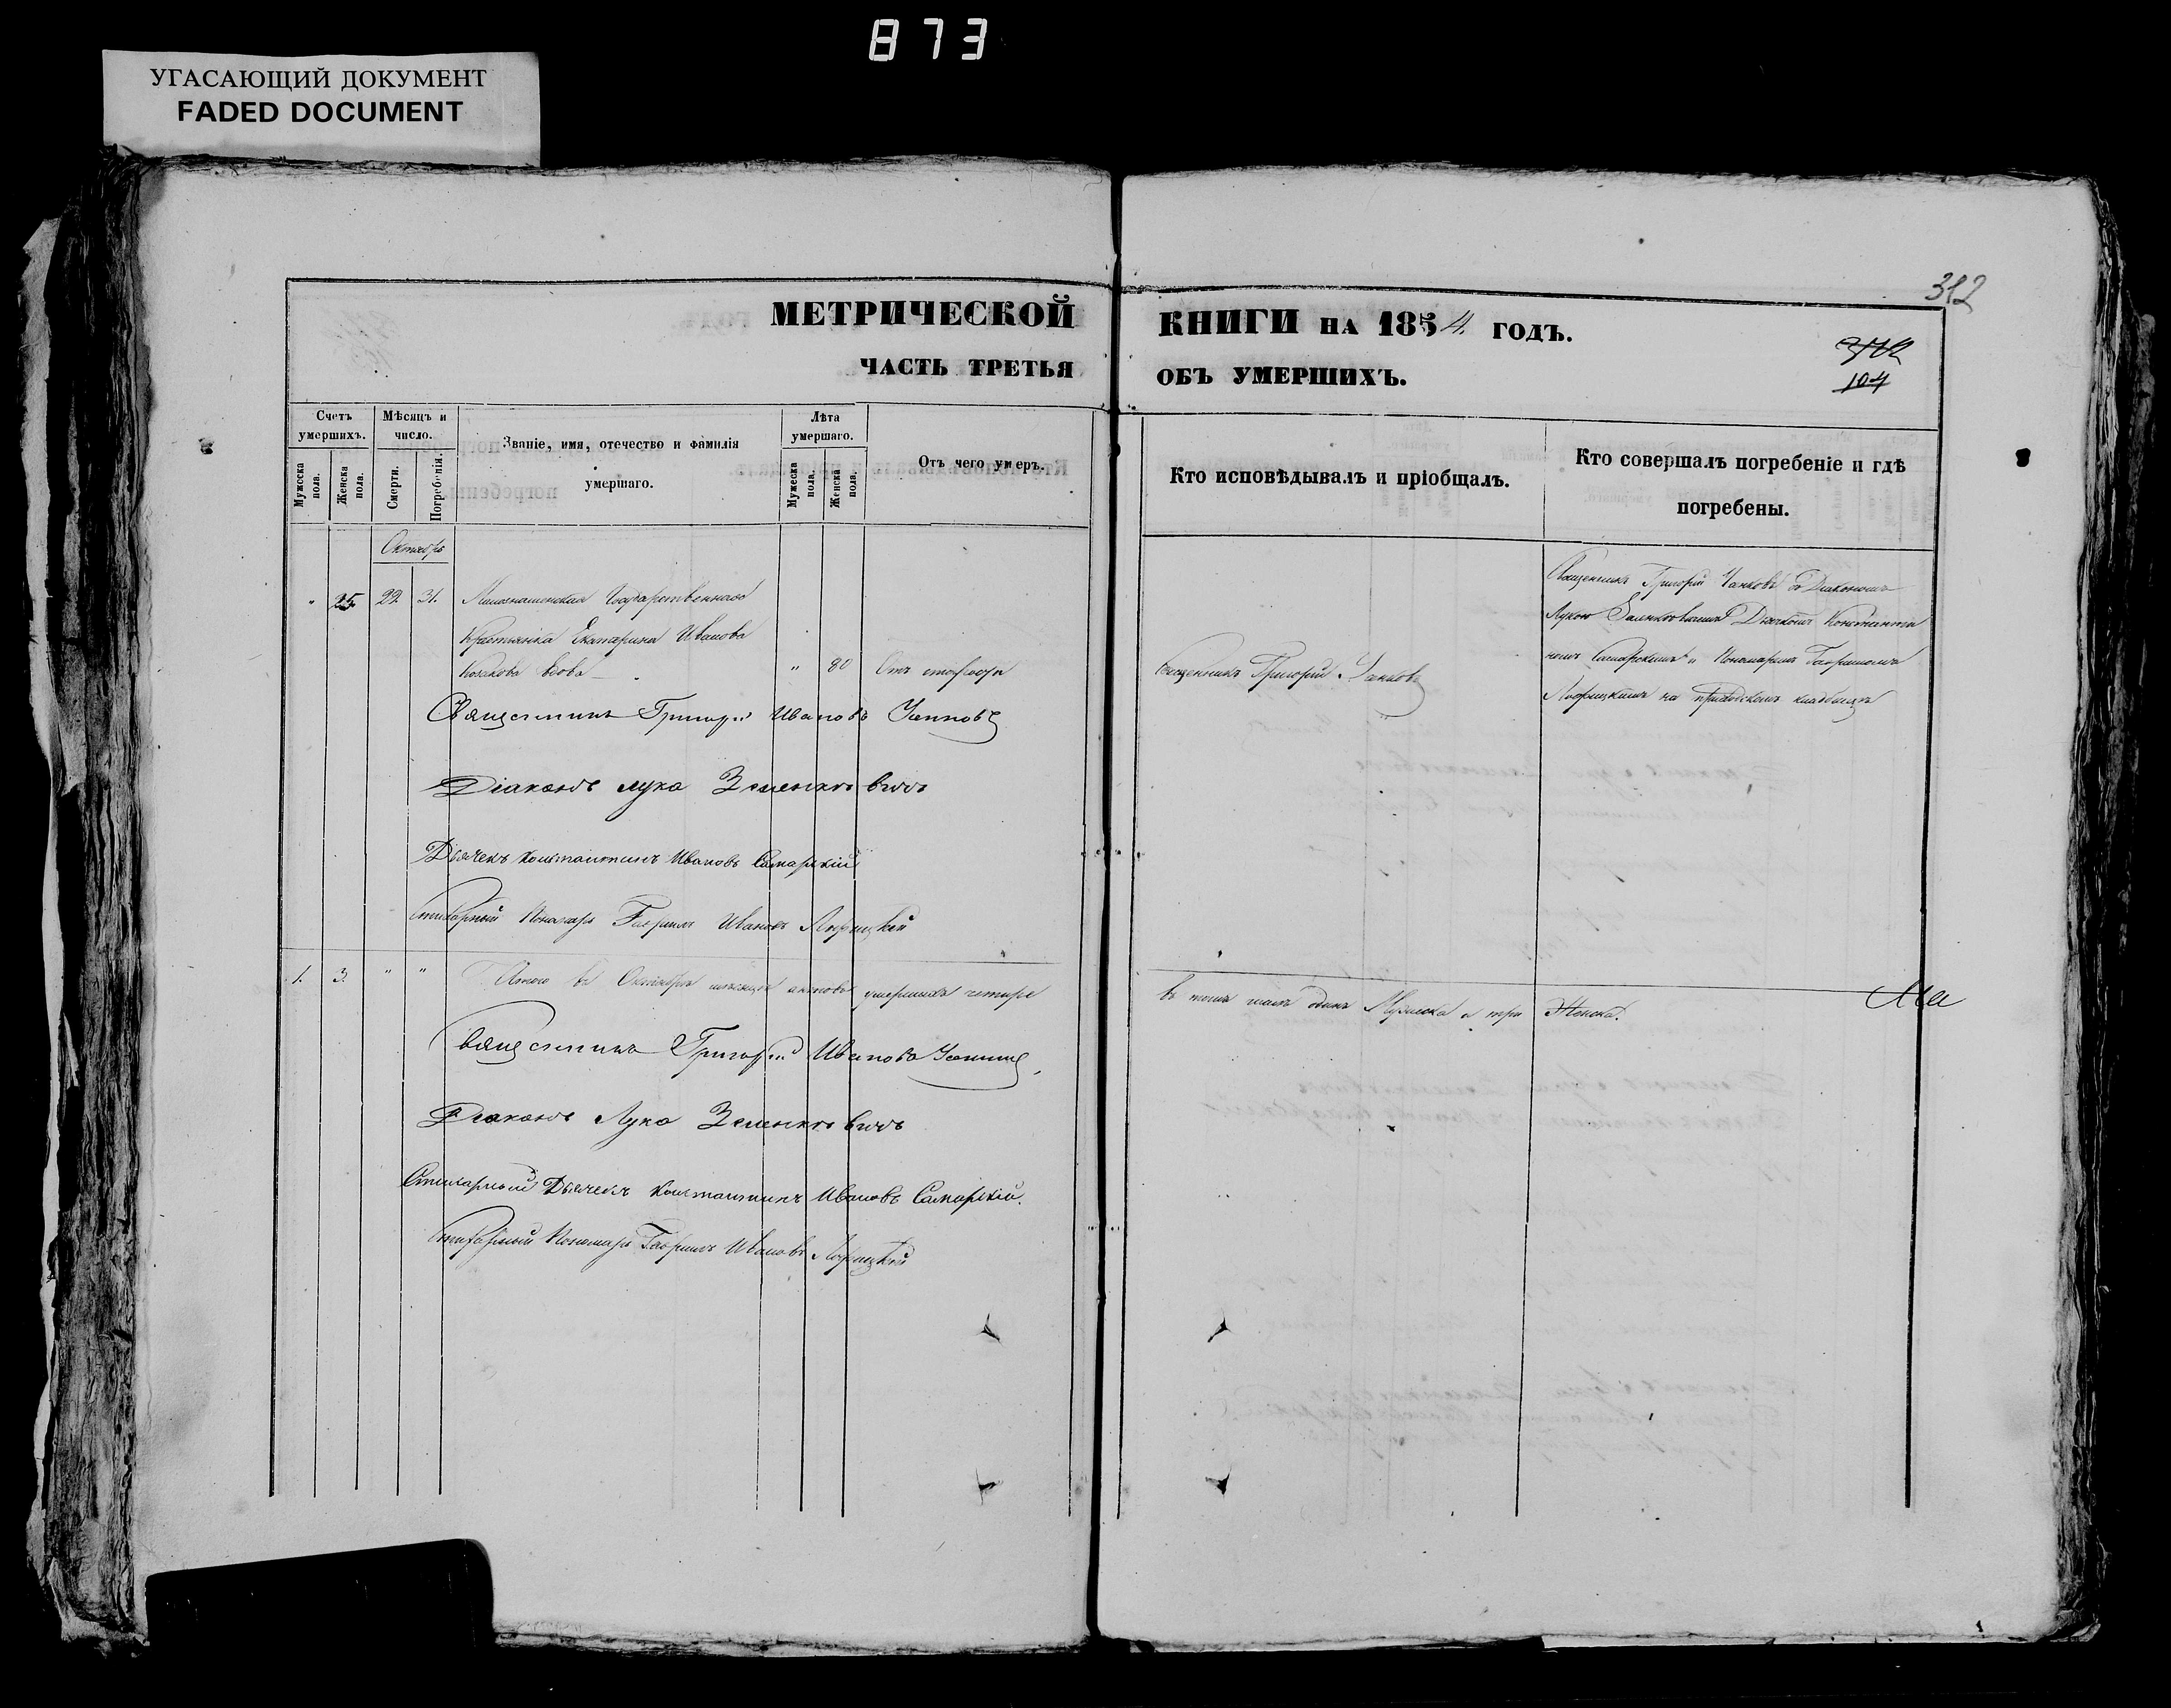 873
УГАСАЮЩИЙ ДОКУМЕНТ
FADED DOCUMENT
312
МЕТРИЧЕСКОЙ КНИГИ НА 1854. ГОДЪ.
ЧАСТЬ ТРЕТЬЯ ОБЪ УМЕРШИХЪ.
104
Счетъ умершихъ.
Мужеска пола.
Женска пола.
Мѣсяцъ и число.
Смерти.
Погребенія.
Званіе, имя, отечество и фамилія умершаго.
Лѣта умершаго.
Мужеска пола.
Женска пола.
Отъ чего умеръ.
Кто исповѣдывалъ и пріобщалъ.
Кто совершалъ погребеніе и гдѣ погребены.
Октябрь
" 25. 29. 31. Государственная
Крестьянка Екатерина Иванова
Козакова вдова " 80 Отъ
Священникъ Григорій
Священникъ Григорій съ Діакономъ
Лукою Дьячкомъ Константи
номъ Самарскимъ и Пономаремъ Гавріиломъ
на приходскомъ кладбищѣ
Священникъ Григорій Ивановъ
Діаконъ Лука Зеленкевичъ
Дьячекъ Константинъ Ивановъ Самарскій
Стихарный Пономарь Гавріилъ Ивановъ
1. 3. " " Итого въ Октябрѣ мѣсяцѣ умершихъ четыре
въ томъ числѣ одинъ Мужеска и три Женска.
Священникъ Григорій Ивановъ
Діаконъ Лука Зеленкевичъ
Стихарный Дьячекъ Константинъ Ивановъ Самарскій.
Стихарный Пономарь Гавріилъ Ивановъ